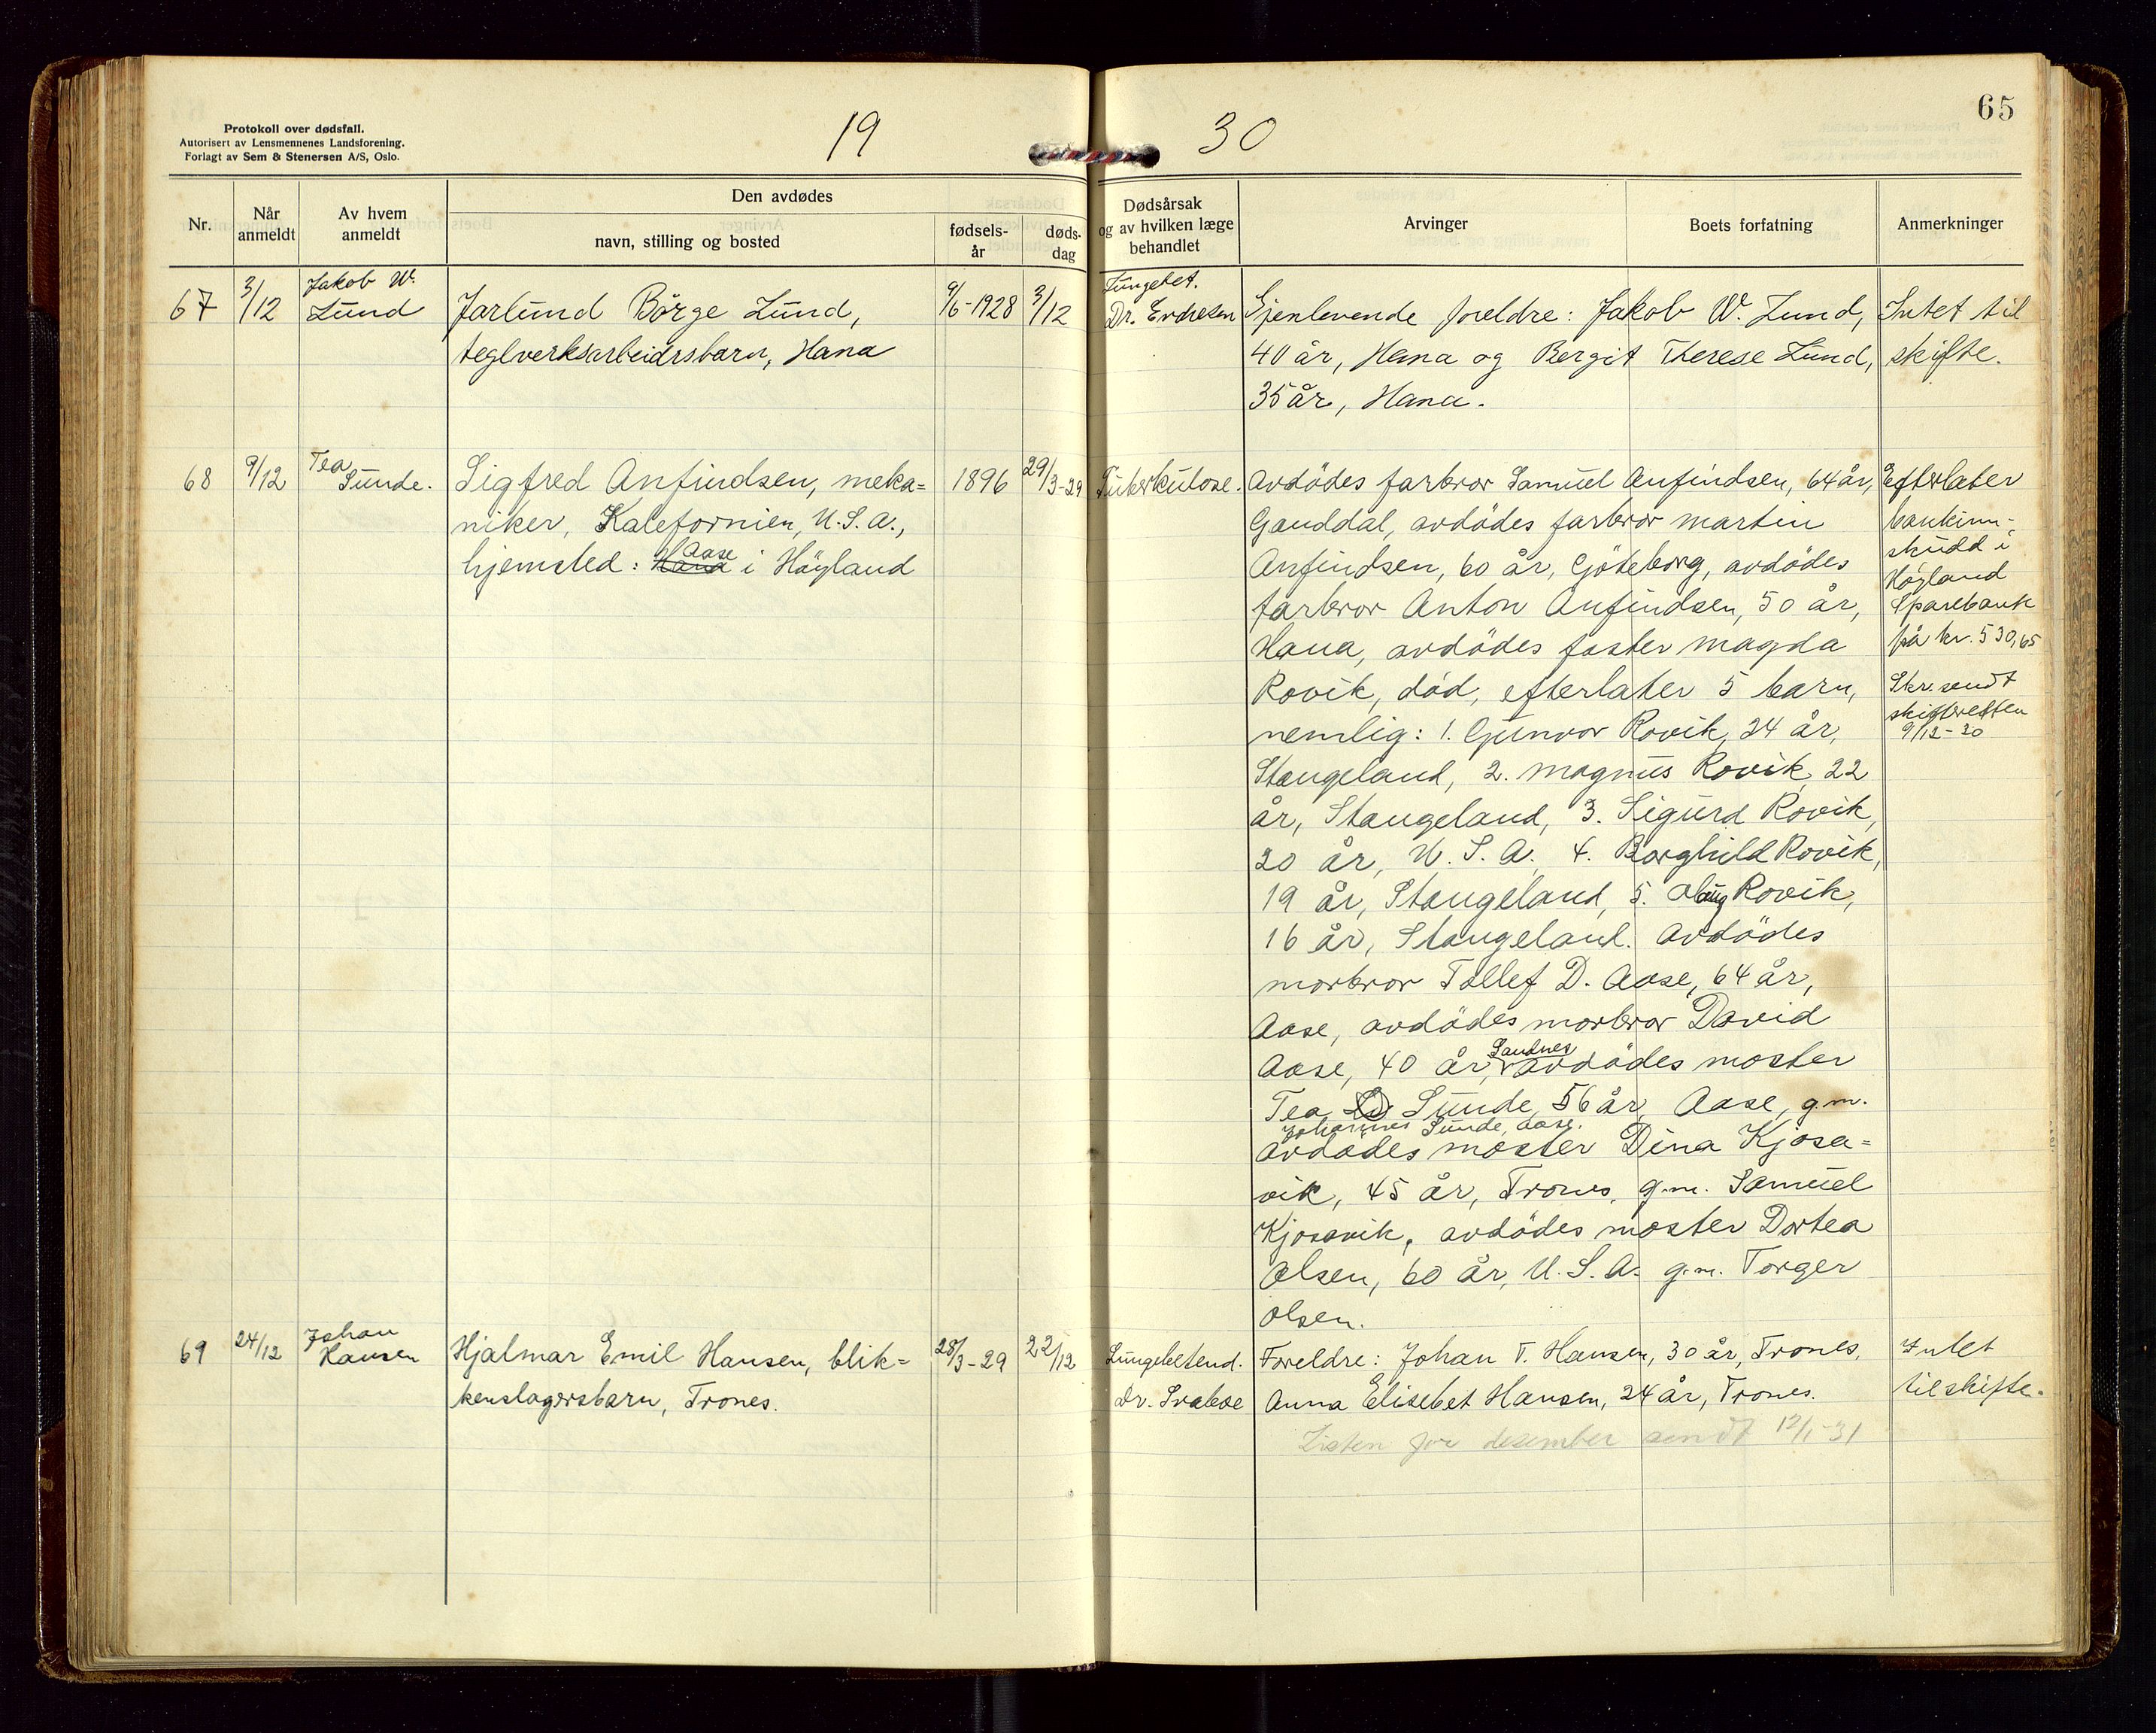 65
19 30
Protokoll over dødsfall.
Autorisert av Lensmennenes Landsforening.
Forlagt av Sem & Stenersen A/S, Oslo.
Nr.
Når
anmeldt
Av hvem
anmeldt
Den avdødes
navn, stilling og bosted
fødsels-
år
døds-
dag
Dødsårsak
og av hvilken læge
behandlet
Arvinger
Boets forfatning
Anmerkninger
67
3/12
Jakob W.
Lund
Jarlund Börge Lund,
teglverksarbeidrsbarn, Hana
9/6-1928
3/12
Lungebet.
Dr. Endresen
Gjenlevende foreldre: Jakob W. Lund,
40 år, Hana og Bergit Therese Lund,
35 år, Hana.
Intet til
skifte.
68
9/12
Tea
Sunde.
Sigfred Anfindsen, meka=
niker, Kalefornien, U.S.A.,
hjemsted: Hana Aase i Höyland
1896
29/3-29
Tuberkulose.
Avdödes farbror Samuel Anfindsen, 64 år,
Ganddal, avdödes farbror Martin
Anfindsen, 60 år, Göteborg, avdödes
farbror Anton Anfindsen, 50 år,
Hana, avdödes faster Magda
Rovik, död, efterlater 5 barn,
nemlig: 1. Gunvor Rovik, 24 år,
Stangeland, 2. Magnus Rovik, 22
år, Stangeland, 3. Sigurd Rovik,
20 år, U.S.A. 4. Borghild Rovik,
19 år, Stangeland, 5. Olaug Rovik,
16 år, Stangeland. Avdödes
morbror Tollef D. Aase, 64 år,
Aase, avdödes morbror David
Aase, 40 år, Sandnes avdödes moster
Tea Sunde, 56 år, Aase, g.m.
Johannes Sunde, Aase.
avdödes moster Dina Kjosa=
vik, 45 år, Trones, g.m. Samuel
Kjosavik, avdödes moster Dortea
Olsen, 60 år, U.S.A. g.m. Torger
Olsen.
Efterlater
bankinn-
skudd i
Höyland
Sparebank
på kr. 530,65
Skr. sendt
skifteretten
9/12-30
69
24/12
Johan
Hansen
Hjalmar Emil Hansen, blik=
kenslagersbarn, Trones.
28/3-29
22/12
Lungebetend.
Dr. Svaboe
Foreldre: Johan T. Hansen, 30 år, Trones,
Anna Elisebet Hansen, 24 år, Trones.
Intet
til skifte.
Listen for desember sendt 12/1-31